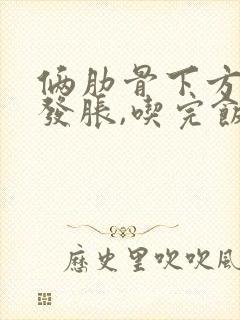 俩肋骨下方
發脹,喫完飯
歷史里吹吹風